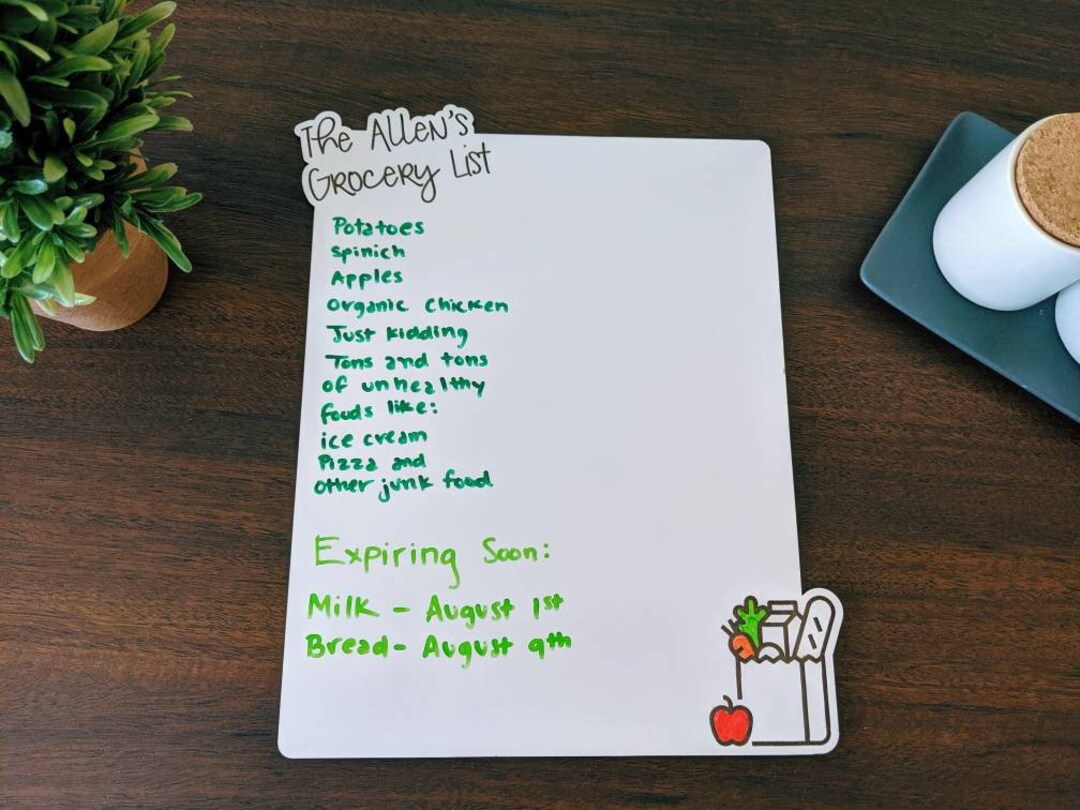 The Allen's
Grocery List
Potatoes
Spinich
Apples
Organic Chicken
Just kidding
Tons and tons
of unhealthy
foods like:
ice cream
Pizza and
other junk food
Expiring Soon:
Milk - August 1st
Bread - August 9th